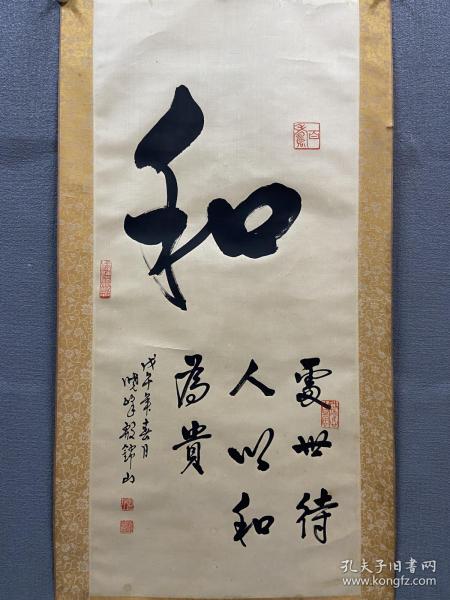 和
處世待
人以和
為貴
戊午年春月
曉峰殷錦山
孔夫子旧书网
www.kongfz.com